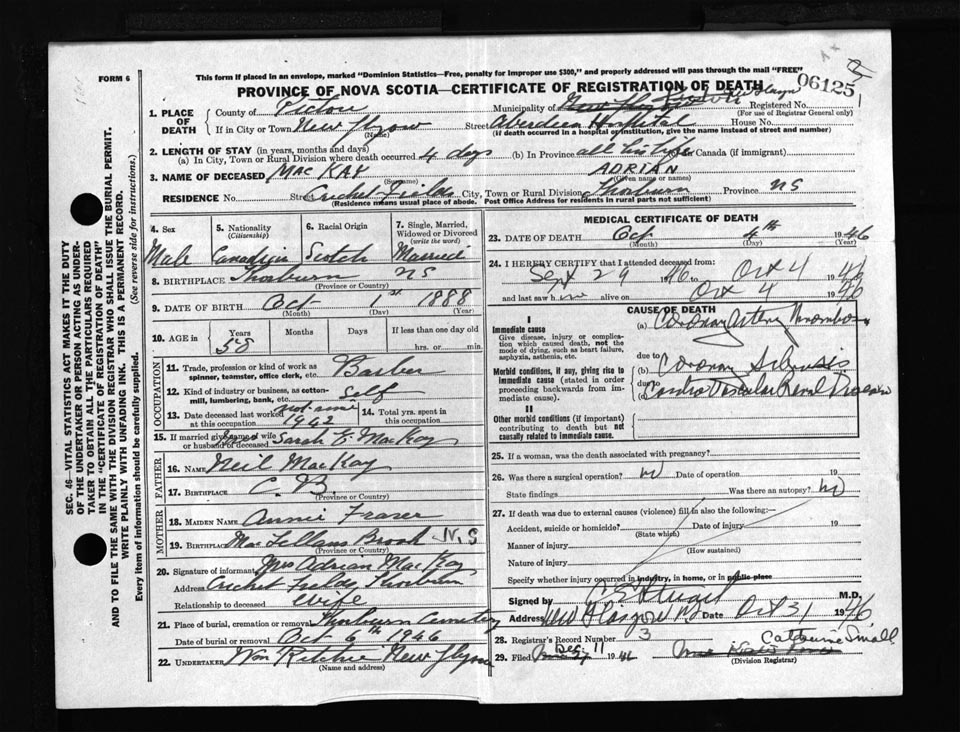 FORM 6
This form if placed in an envelope, marked "Dominion Statistics—Free, penalty for improper use $300," and properly addressed will pass through the mail "FREE"
PROVINCE OF NOVA SCOTIA—CERTIFICATE OF REGISTRATION OF DEATH
06125
1. PLACE OF DEATH
County of Pictou
Municipality of
Registered No.
(For use of Registrar General only)
If in City or Town New Glasgow
(Name)
Street Aberdeen Hospital House No.
(If death occurred in a hospital or institution, give the name instead of street and number)
2. LENGTH OF STAY (in years, months and days)
(a) In City, Town or Rural Division where death occurred 4 days (b) In Province all his life Canada (if immigrant)
3. NAME OF DECEASED MACKAY ADRIAN
(Surname) (Given name or names)
RESIDENCE No. Street Cricket Fields City, Town or Rural Division Thorburn Province NS
(Residence means usual place of abode. Post Office Address for residents in rural parts not sufficient)
SEC. 46—VITAL STATISTICS ACT MAKES IT THE DUTY
OF THE UNDERTAKER OR PERSON ACTING AS UNDER-
TAKER TO OBTAIN ALL THE PARTICULARS REQUIRED
IN THE "CERTIFICATE OF REGISTRATION OF DEATH"
AND TO FILE THE SAME WITH THE DIVISION REGISTRAR WHO SHALL ISSUE THE BURIAL PERMIT.
WRITE PLAINLY WITH UNFADING INK. THIS IS A PERMANENT RECORD.
Every item of information should be carefully supplied. (See reverse side for instructions.)
4. Sex
Male
5. Nationality
(Citizenship)
Canadian
6. Racial Origin
Scotch
7. Single, Married, Widowed or Divorced
(write the word)
Married
8. BIRTHPLACE Thorburn NS
(Province or Country)
9. DATE OF BIRTH Oct 1st 1888
(Month) (Day) (Year)
10. AGE in Years Months Days If less than one day
58 hrs. or min.
OCCUPATION
11. Trade, profession or kind of work as spinner, teamster, office clerk, etc. Barber
12. Kind of industry or business, as cotton-mill, lumbering, bank, etc. Self
13. Date deceased last worked at this occupation 1942
14. Total yrs. spent in this occupation
15. If married give name of wife or husband of deceased Sarah E. MacKay
FATHER
16. NAME Neil MacKay
17. BIRTHPLACE C.B.
(Province or Country)
MOTHER
18. MAIDEN NAME Annie Fraser
19. BIRTHPLACE MacLellans Brook N.S
(Province or Country)
20. Signature of informant Mrs Adrian MacKay
Address Cricket Fields, Thorburn
Relationship to deceased Wife
21. Place of burial, cremation or removal Thorburn Cemetery
Date of burial or removal Oct 6th 1946
22. UNDERTAKER Wm Ritchie New Glasgow
(Name and address)
MEDICAL CERTIFICATE OF DEATH
23. DATE OF DEATH Oct 4th 1946
(Month) (Day) (Year)
24. I HEREBY CERTIFY that I attended deceased from:
Sept 29 46 to Oct 4 1946
and last saw him alive on Oct 4 1946
CAUSE OF DEATH
I
Immediate cause
Give disease, injury or complication which caused death, not the mode of dying, such as heart failure, asphyxia, asthenia, etc.
(a) Coronary Artery Thrombosis
Morbid conditions, if any, giving rise to immediate cause (stated in order proceeding backwards from immediate cause).
due to
(b) Coronary Sclerosis
due to
(c) Cardio Vascular Renal Disease
II
Other morbid conditions (if important) contributing to death but not causally related to immediate cause.
25. If a woman, was the death associated with pregnancy?
26. Was there a surgical operation? No Date of operation 19
State findings Was there an autopsy? No
27. If death was due to external causes (violence) fill in also the following:—
Accident, suicide or homicide? Date of injury 19
(State which)
Manner of injury
(How sustained)
Nature of injury
Specify whether injury occurred in industry, in home, or in public place
Signed by M.D.
Address New Glasgow NS Date Oct 31 1946
28. Registrar's Record Number 3
29. Filed Dec. 11 1946 Catherine Small
(Division Registrar)